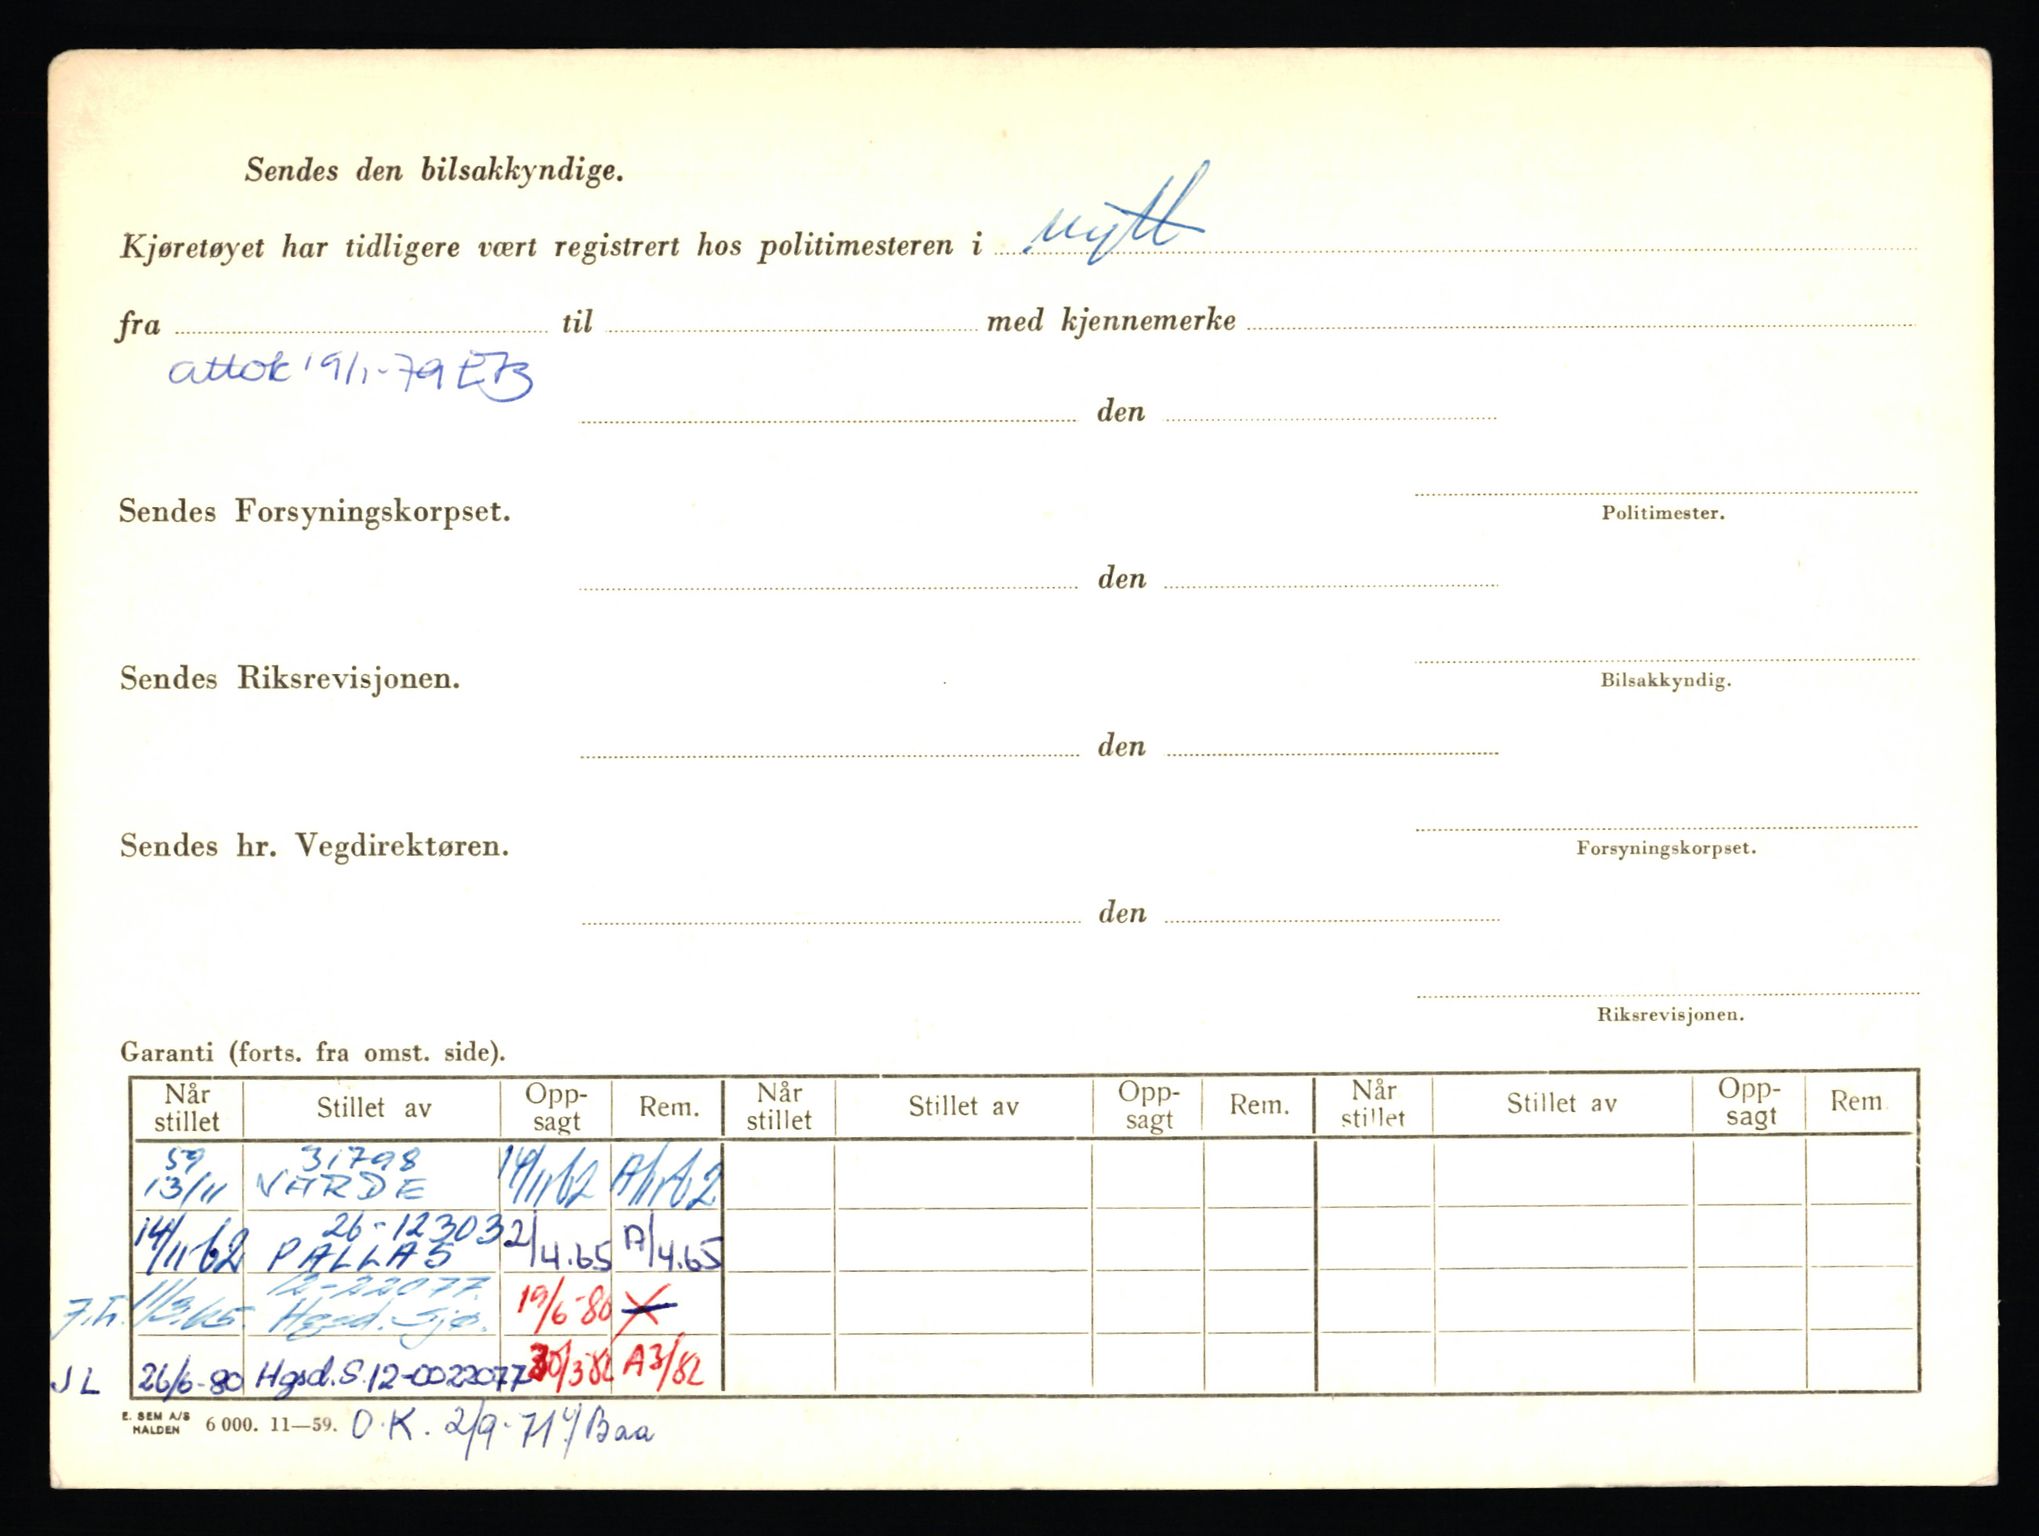 Sendes den bilsakkyndige.
Kjøretøyet har tidligere vært registrert hos politimesteren i nytt
fra til med kjennemerke
attok 19/1-79 EB
den
Sendes Forsyningskorpset.
Politimester.
den
Sendes Riksrevisjonen.
Bilsakkyndig.
den
Sendes hr. Vegdirektøren.
Forsyningskorpset.
den
Riksrevisjonen.
Garanti (forts. fra omst. side).
Når stillet Stillet av Opp-sagt Rem. Når stillet Stillet av Opp-sagt Rem. Når stillet Stillet av Opp-sagt Rem
59 31798
13/11 VARDE 14/11 62 A/11.62
14/11-62 26-12303 PALLAS 2/4.65 A/4.65
11/3.65. 12-22077. Hgsd. Sjø. 19/6-80 X
JL 26/6-80 Hgsd. S. 12-0022077 30/3 82 A3/82
E. SEM A/S HALDEN 6 000. 11—59. O.K. 2/9-71 Baa